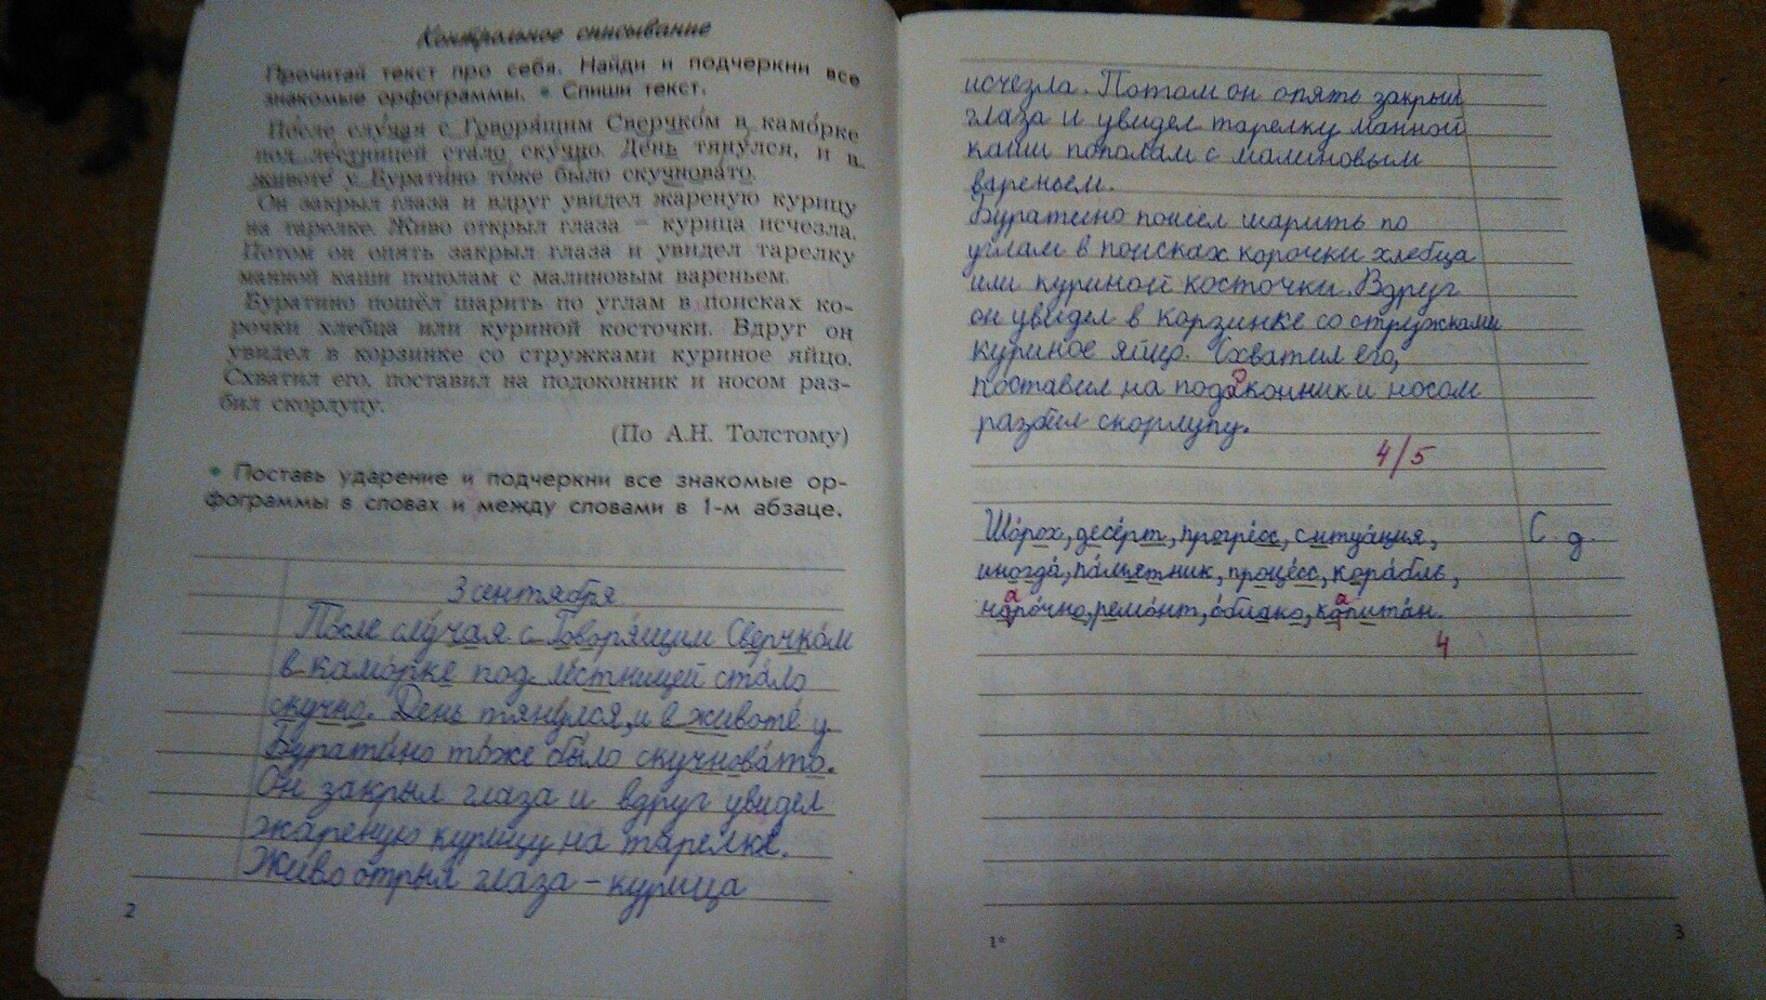 Контрольное списывание
Прочитай текст про себя. Найди и подчеркни все
знакомые орфограммы. • Спиши текст.
После случая с Говорящим Сверчком в каморке
под лестницей стало скучно. День тянулся, и в
животе у Буратино тоже было скучновато.
Он закрыл глаза и вдруг увидел жареную курицу
на тарелке. Живо открыл глаза – курица исчезла.
Потом он опять закрыл глаза и увидел тарелку
манной каши пополам с малиновым вареньем.
Буратино пошёл шарить по углам в поисках ко-
рочки хлебца или куриной косточки. Вдруг он
увидел в корзинке со стружками куриное яйцо.
Схватил его, поставил на подоконник и носом раз-
бил скорлупу.
(По А.Н. Толстому)
• Поставь ударение и подчеркни все знакомые ор-
фограммы в словах и между словами в 1-м абзаце.
3 сентября
После случая с Говорящим Сверчком
в каморке под лестницей стало
скучно. День тянулся, и в животе у
Буратино тоже было скучновато.
Он закрыл глаза и вдруг увидел
жареную курицу на тарелке.
Живо отрыл глаза – курица
2
исчезла. Потом он опять закрыл
глаза и увидел тарелку манной
каши пополам с малиновым
вареньем.
Буратино пошёл шарить по
углам в поисках корочки хлебца
или куриной косточки. Вдруг
он увидел в корзинке со стружками
куриное яйцо. Схватил его,
поставил на подоконник и носом
разбил скорлупу.
4/5
Шо́рох, десе́рт, прогре́сс, ситуа́ция, С. д.
иногда́, па́мятник, проце́сс, кора́бль,
наро́чно, ремо́нт, о́блако, капита́н.
4
1*
3